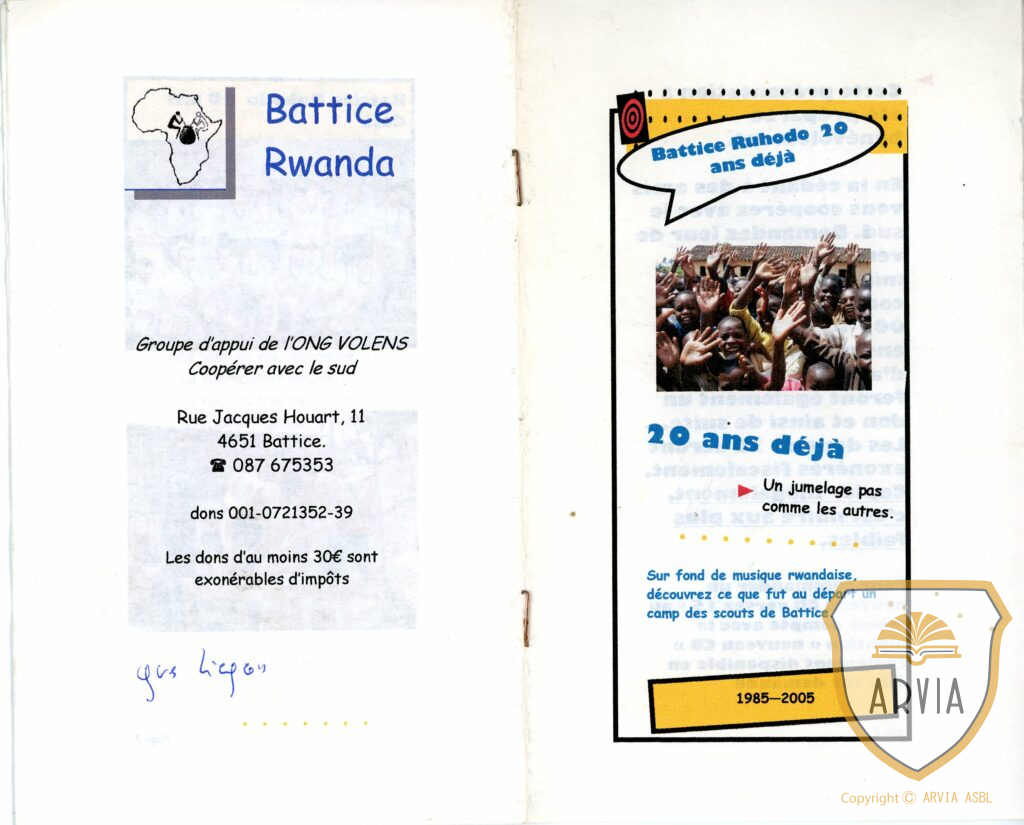 Battice
Rwanda
Groupe d'appui de l'ONG VOLENS
Coopérer avec le sud
Rue Jacques Houart, 11
4651 Battice.
☎ 087 675353
dons 001-0721352-39
Les dons d'au moins 30€ sont
exonérables d'impôts
Battice Ruhodo 20
ans déjà
20 ans déjà
Un jumelage pas
comme les autres.
Sur fond de musique rwandaise,
découvrez ce que fut au départ un
camp des scouts de Battice.
1985—2005
ARVIA
Copyright © ARVIA ASBL